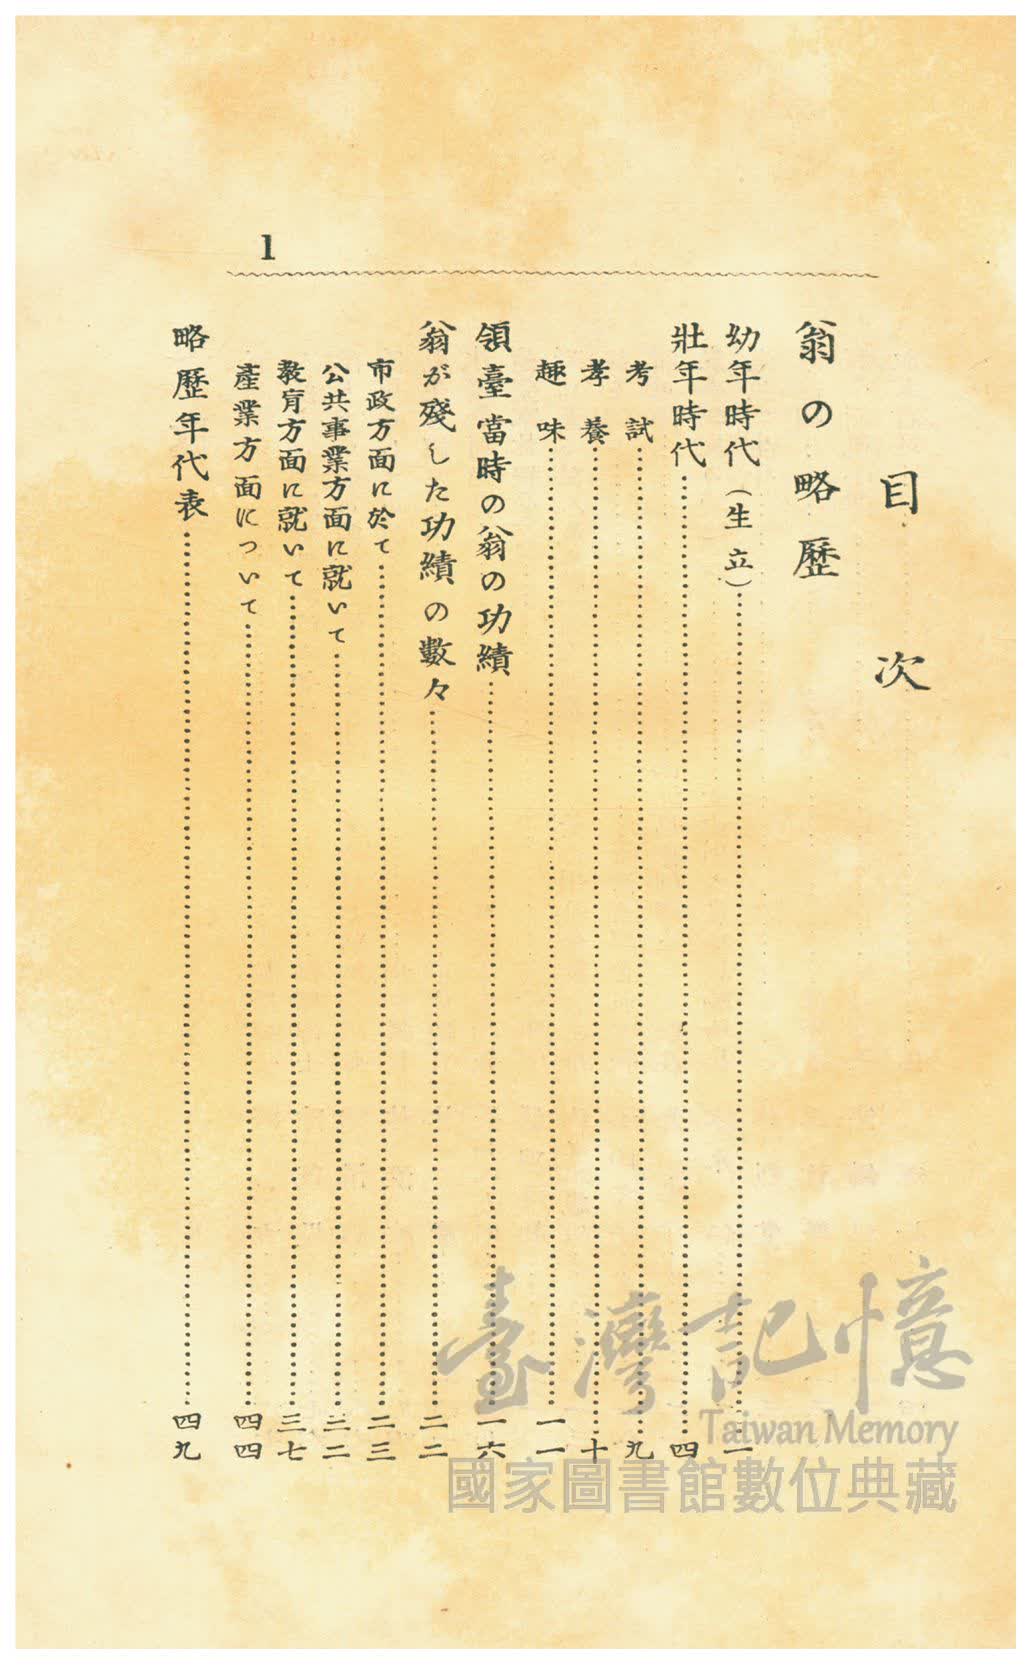 目次
翁の略歷
幼年時代（生立）……一
壯年時代……四
考試……九
孝養……十
趣味……一一
領臺當時の翁の功績……一六
翁が殘した功績の數々……二二
市政方面に於て……二三
公共事業方面に就いて……三二
教育方面に就いて……三七
產業方面について……四四
略歷年代表……四九
1
臺灣記憶
Taiwan Memory
國家圖書館數位典藏